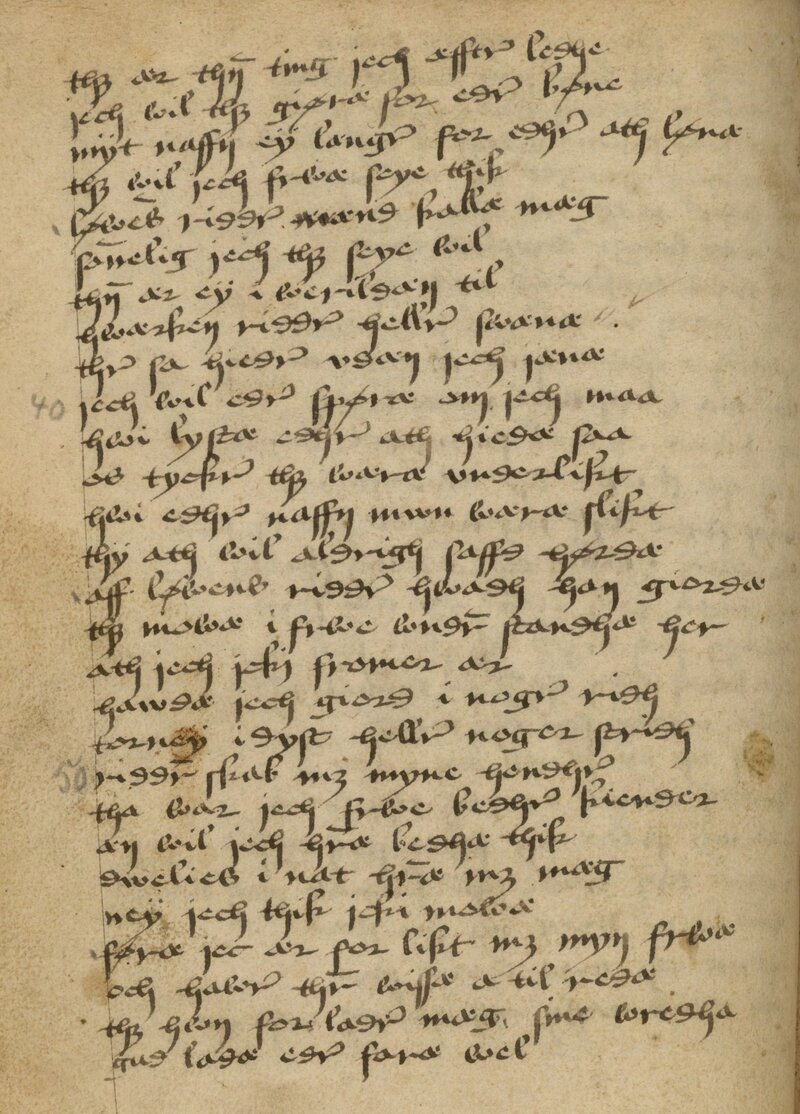 thȝ ær thn̄ ting jech æfftr̛ ledhe
jech wil thȝ giøræ for edr̛ bøne
myt naffn ey længr̛ for edhr̛ ath lønæ
thȝ wil jech frwæ seye thik
løwēs riddr̛ mænd kallæ mæg
son̄elig jech thȝ seye wil
thn̄ ær ey i werildæn til
hwærken riddr̛ hellr̛ swænæ
thr̛ sa hiedr̛ vdæn jech jænæ
40 jech wil edr̛ spøræ om jech maa
hwi lystæ edhr̛ ath hiedæ saa
os tyckr̛ thȝ wæræ vnderlikt
hwi edhr̛ naffn mwn wæræ slikt
thy ath wil aldrigh saffd hørdæ
aff løwens riddr̛ hwadh han giordæ
thȝ mowæ i frwe wndr̛ standhæ her
ath jech jcki fromer ær
hawdæ jech giord i nogr̛ ridh
torney i dyst hellr̛ noger stridh
50 riddr̛ skab mȝ myne hendhr̛
tha war jech frwe bedhr̛ kiender
æn wil jech hr̄æ bedhæ thik
dwelies i nat hr̄æ mȝ mæg
ney jech thik jcki mowæ
føræ jec ær for likt mȝ myn frwæ
och hawr̛ thr̄ wissæ a til redæ
thȝ hwn for ladr̛ mæg sine wredha
gud ladæ edr̛ faræ wel